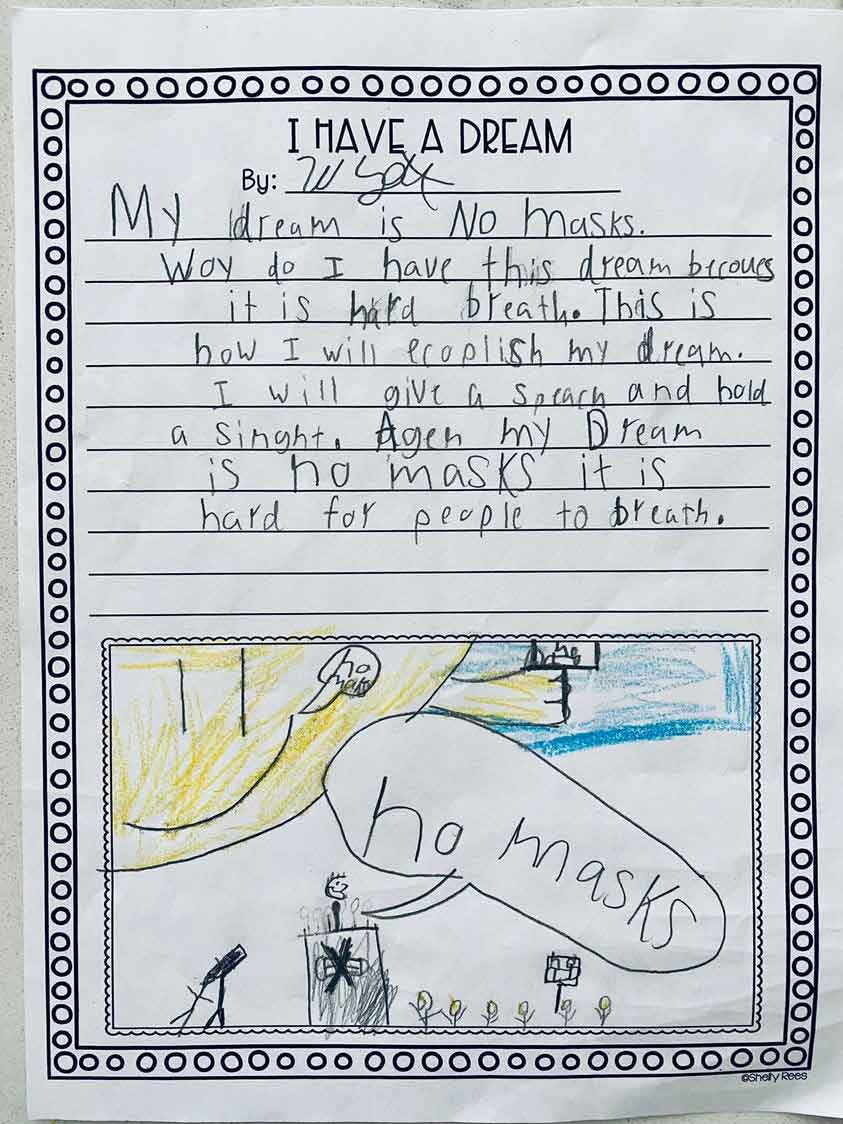 I HAVE A DREAM
By:
My dream is No masks.
Way do I have this dream becoues
it is hard breath. This is
how I will ecoplish my dream.
I will give a speach and hold
a singht. Agen my Dream
is no masks it is
hard for people to breath.
no
no masks
©Shelly Rees